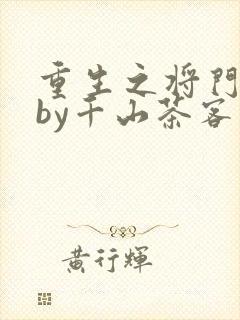 重生之将門
by千山茶客
黃行輝